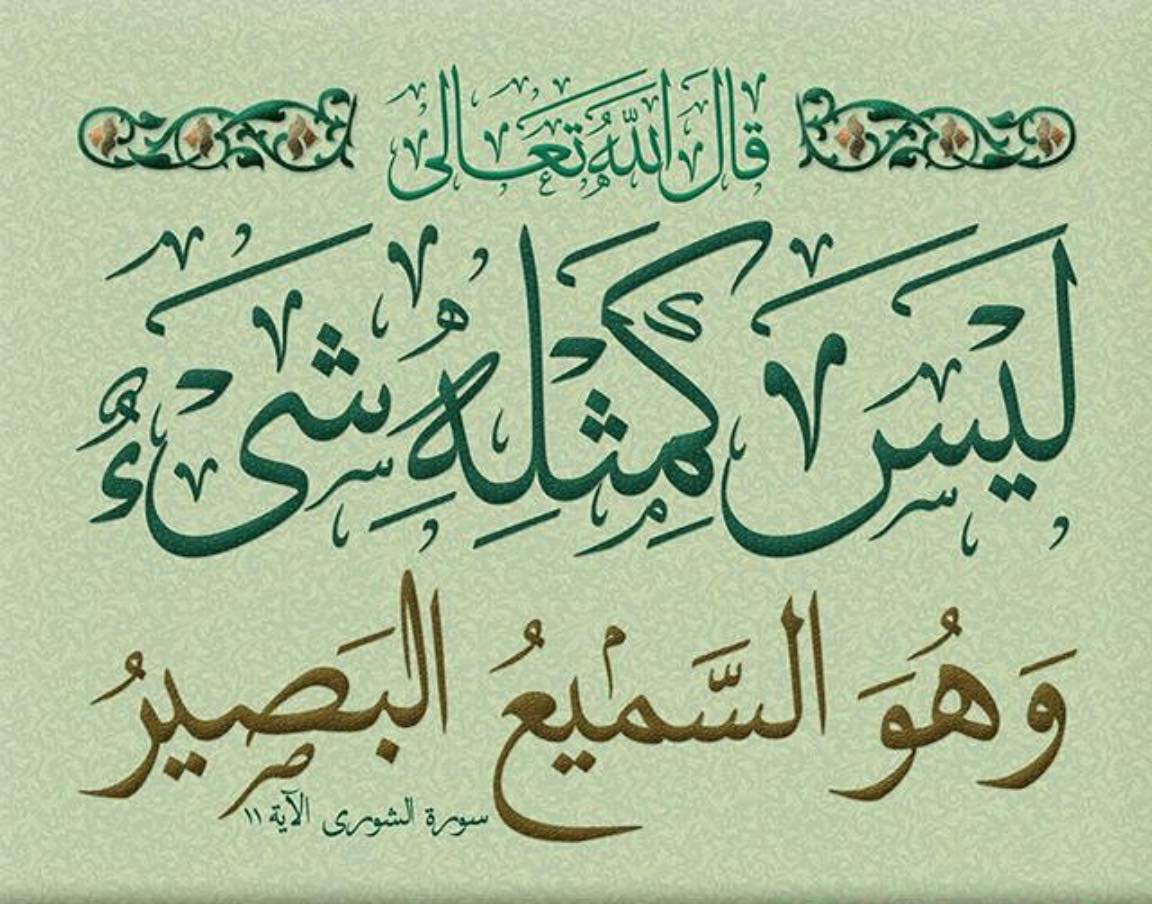 قَالَ اللَّهُ تَعَالَى
لَيْسَ كَمِثْلِهِ شَيْءٌ
وَهُوَ السَّمِيعُ البَصِيرُ
سورة الشورى الآية ١١